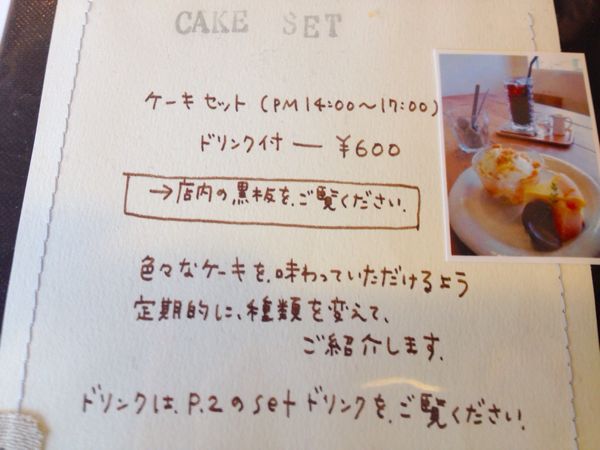 CAKE SET
ケーキセット (PM14:00〜17:00)
ドリンク付 — ¥600
→店内の黒板を、ご覧ください.
色々なケーキを、味わっていただけるよう
定期的に、種類を変えて、
ご紹介します.
ドリンクは、P.2のsetドリンクを、ご覧ください.